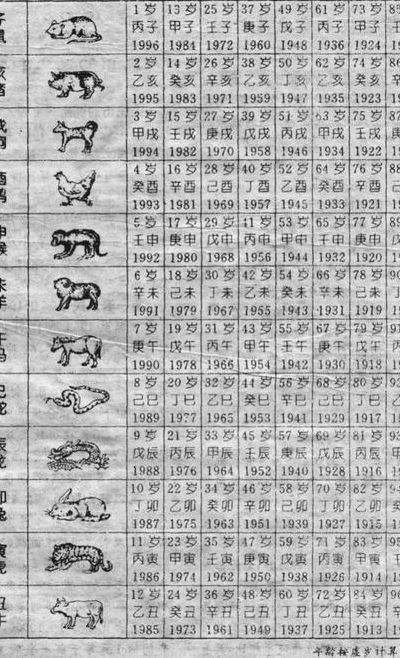 鼠
1岁 13岁 25岁 37岁 49岁 61岁 73岁 85
丙子 甲子 壬子 庚子 戊子 丙子 甲子
1996 1984 1972 1960 1948 1936 1924
亥
猪
2岁 14岁 26岁 38岁 50岁 62岁 74岁 86
乙亥 癸亥 辛亥 己亥 丁亥 乙亥 癸亥
1995 1983 1971 1959 1947 1935 1923
戌
狗
3岁 15岁 27岁 39岁 51岁 63岁 75岁 87
甲戌 壬戌 庚戌 戊戌 丙戌 甲戌 壬戌
1994 1982 1970 1958 1946 1934 1922
酉
鸡
4岁 16岁 28岁 40岁 52岁 64岁 76岁 88
癸酉 辛酉 己酉 丁酉 乙酉 癸酉 辛酉
1993 1981 1969 1957 1945 1933 1921
申
猴
5岁 17岁 29岁 41岁 53岁 65岁 77岁 89
壬申 庚申 戊申 丙申 甲申 壬申 庚申
1992 1980 1968 1956 1944 1932 1920
未
羊
6岁 18岁 30岁 42岁 54岁 66岁 78岁 90
辛未 己未 丁未 乙未 癸未 辛未 己未
1991 1979 1967 1955 1943 1931 1919
午
马
7岁 19岁 31岁 43岁 55岁 67岁 79岁 91
庚午 戊午 丙午 甲午 壬午 庚午 戊午
1990 1978 1966 1954 1942 1930 1918
巳
蛇
8岁 20岁 32岁 44岁 56岁 68岁 80岁 92
己巳 丁巳 乙巳 癸巳 辛巳 己巳 丁巳
1989 1977 1965 1953 1941 1929 1917
辰
龙
9岁 21岁 33岁 45岁 57岁 69岁 81岁 93
戊辰 丙辰 甲辰 壬辰 庚辰 戊辰 丙辰
1988 1976 1964 1952 1940 1928 1916
卯
兔
10岁 22岁 34岁 46岁 58岁 70岁 82岁
丁卯 乙卯 癸卯 辛卯 己卯 丁卯 乙卯
1987 1975 1963 1951 1939 1927 1915
寅
虎
11岁 23岁 35岁 47岁 59岁 71岁 83岁
丙寅 甲寅 壬寅 庚寅 戊寅 丙寅 甲寅
1986 1974 1962 1950 1938 1926 1914
丑
牛
12岁 24岁 36岁 48岁 60岁 72岁 84岁
乙丑 癸丑 辛丑 己丑 丁丑 乙丑 癸丑
1985 1973 1961 1949 1937 1925 1913
年龄按虚岁计算